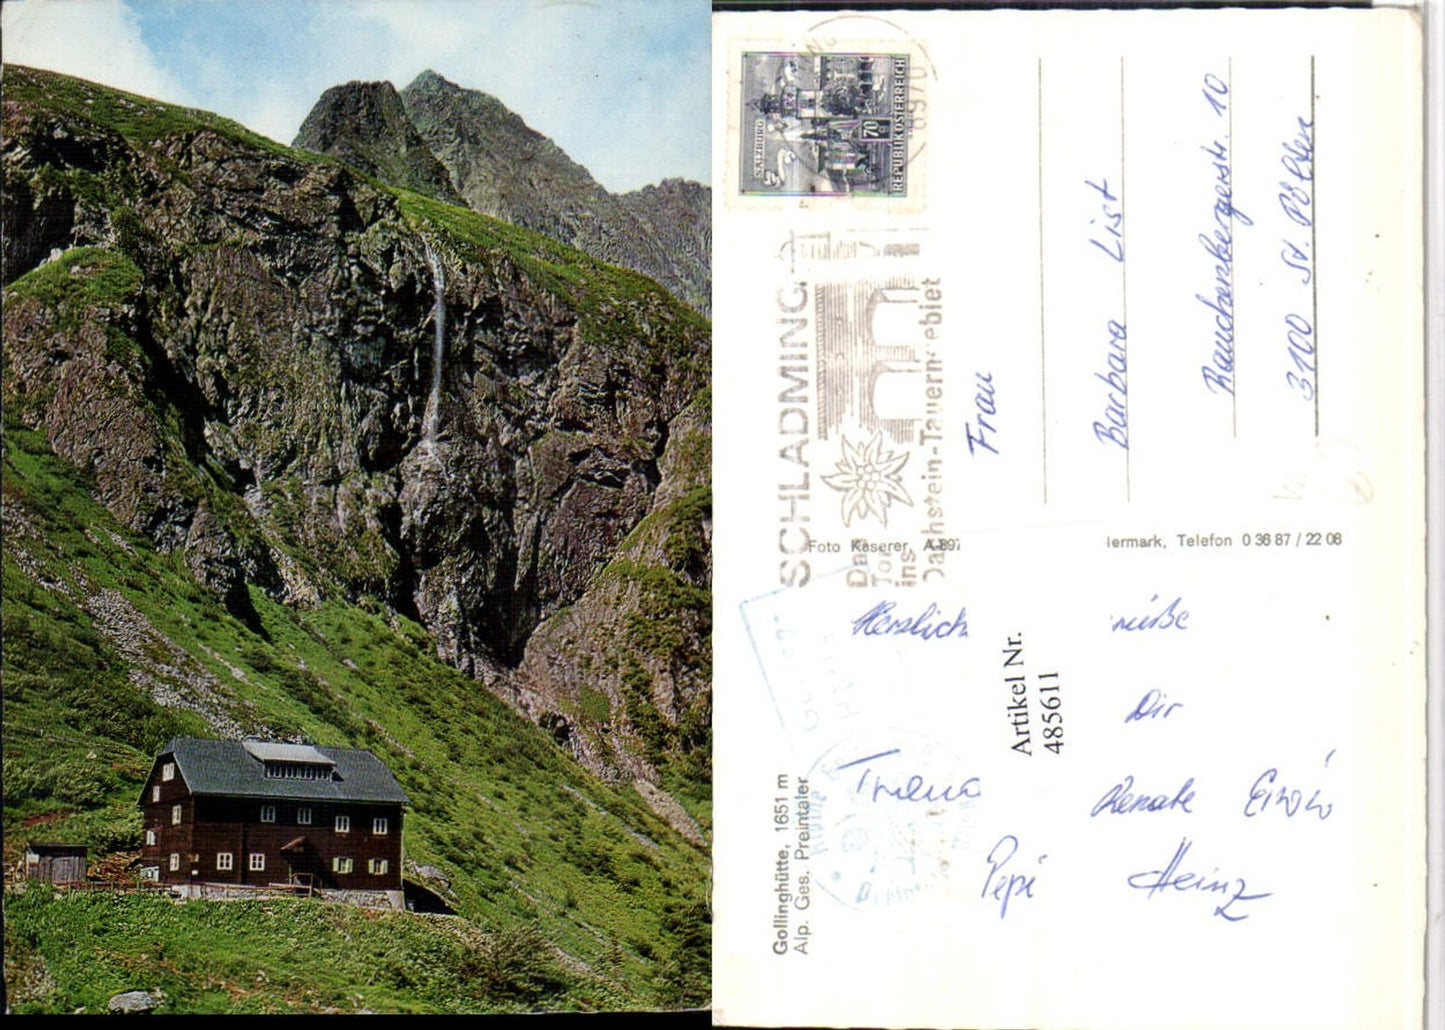 SALZBURG
70
REPUBLIK ÖSTERREICH
8970
SCHLADMING
Das
Tor
ins
Dachstein-Tauerngebiet
Frau
Barbara List
Rauchenbergerstr. 10
3100 St. Pölten
Foto Kaserer, A-897
iermark, Telefon 0 36 87 / 22 08
Herzlich
rüße
Dir
Renate
Pepi Heinz
Artikel Nr.
485611
Gollinghütte, 1651 m
Alp. Ges. Preintaler